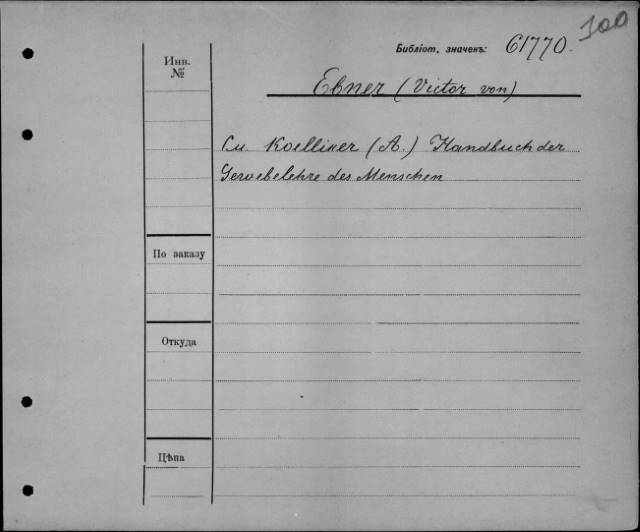 100
Библiот. значекъ: 61770.
Инв.
№
Ebner (Victor von)
См. Koelliker (A.) Handbuch der
Gewebelehre des Menschen
По заказу
Откуда
Цѣна